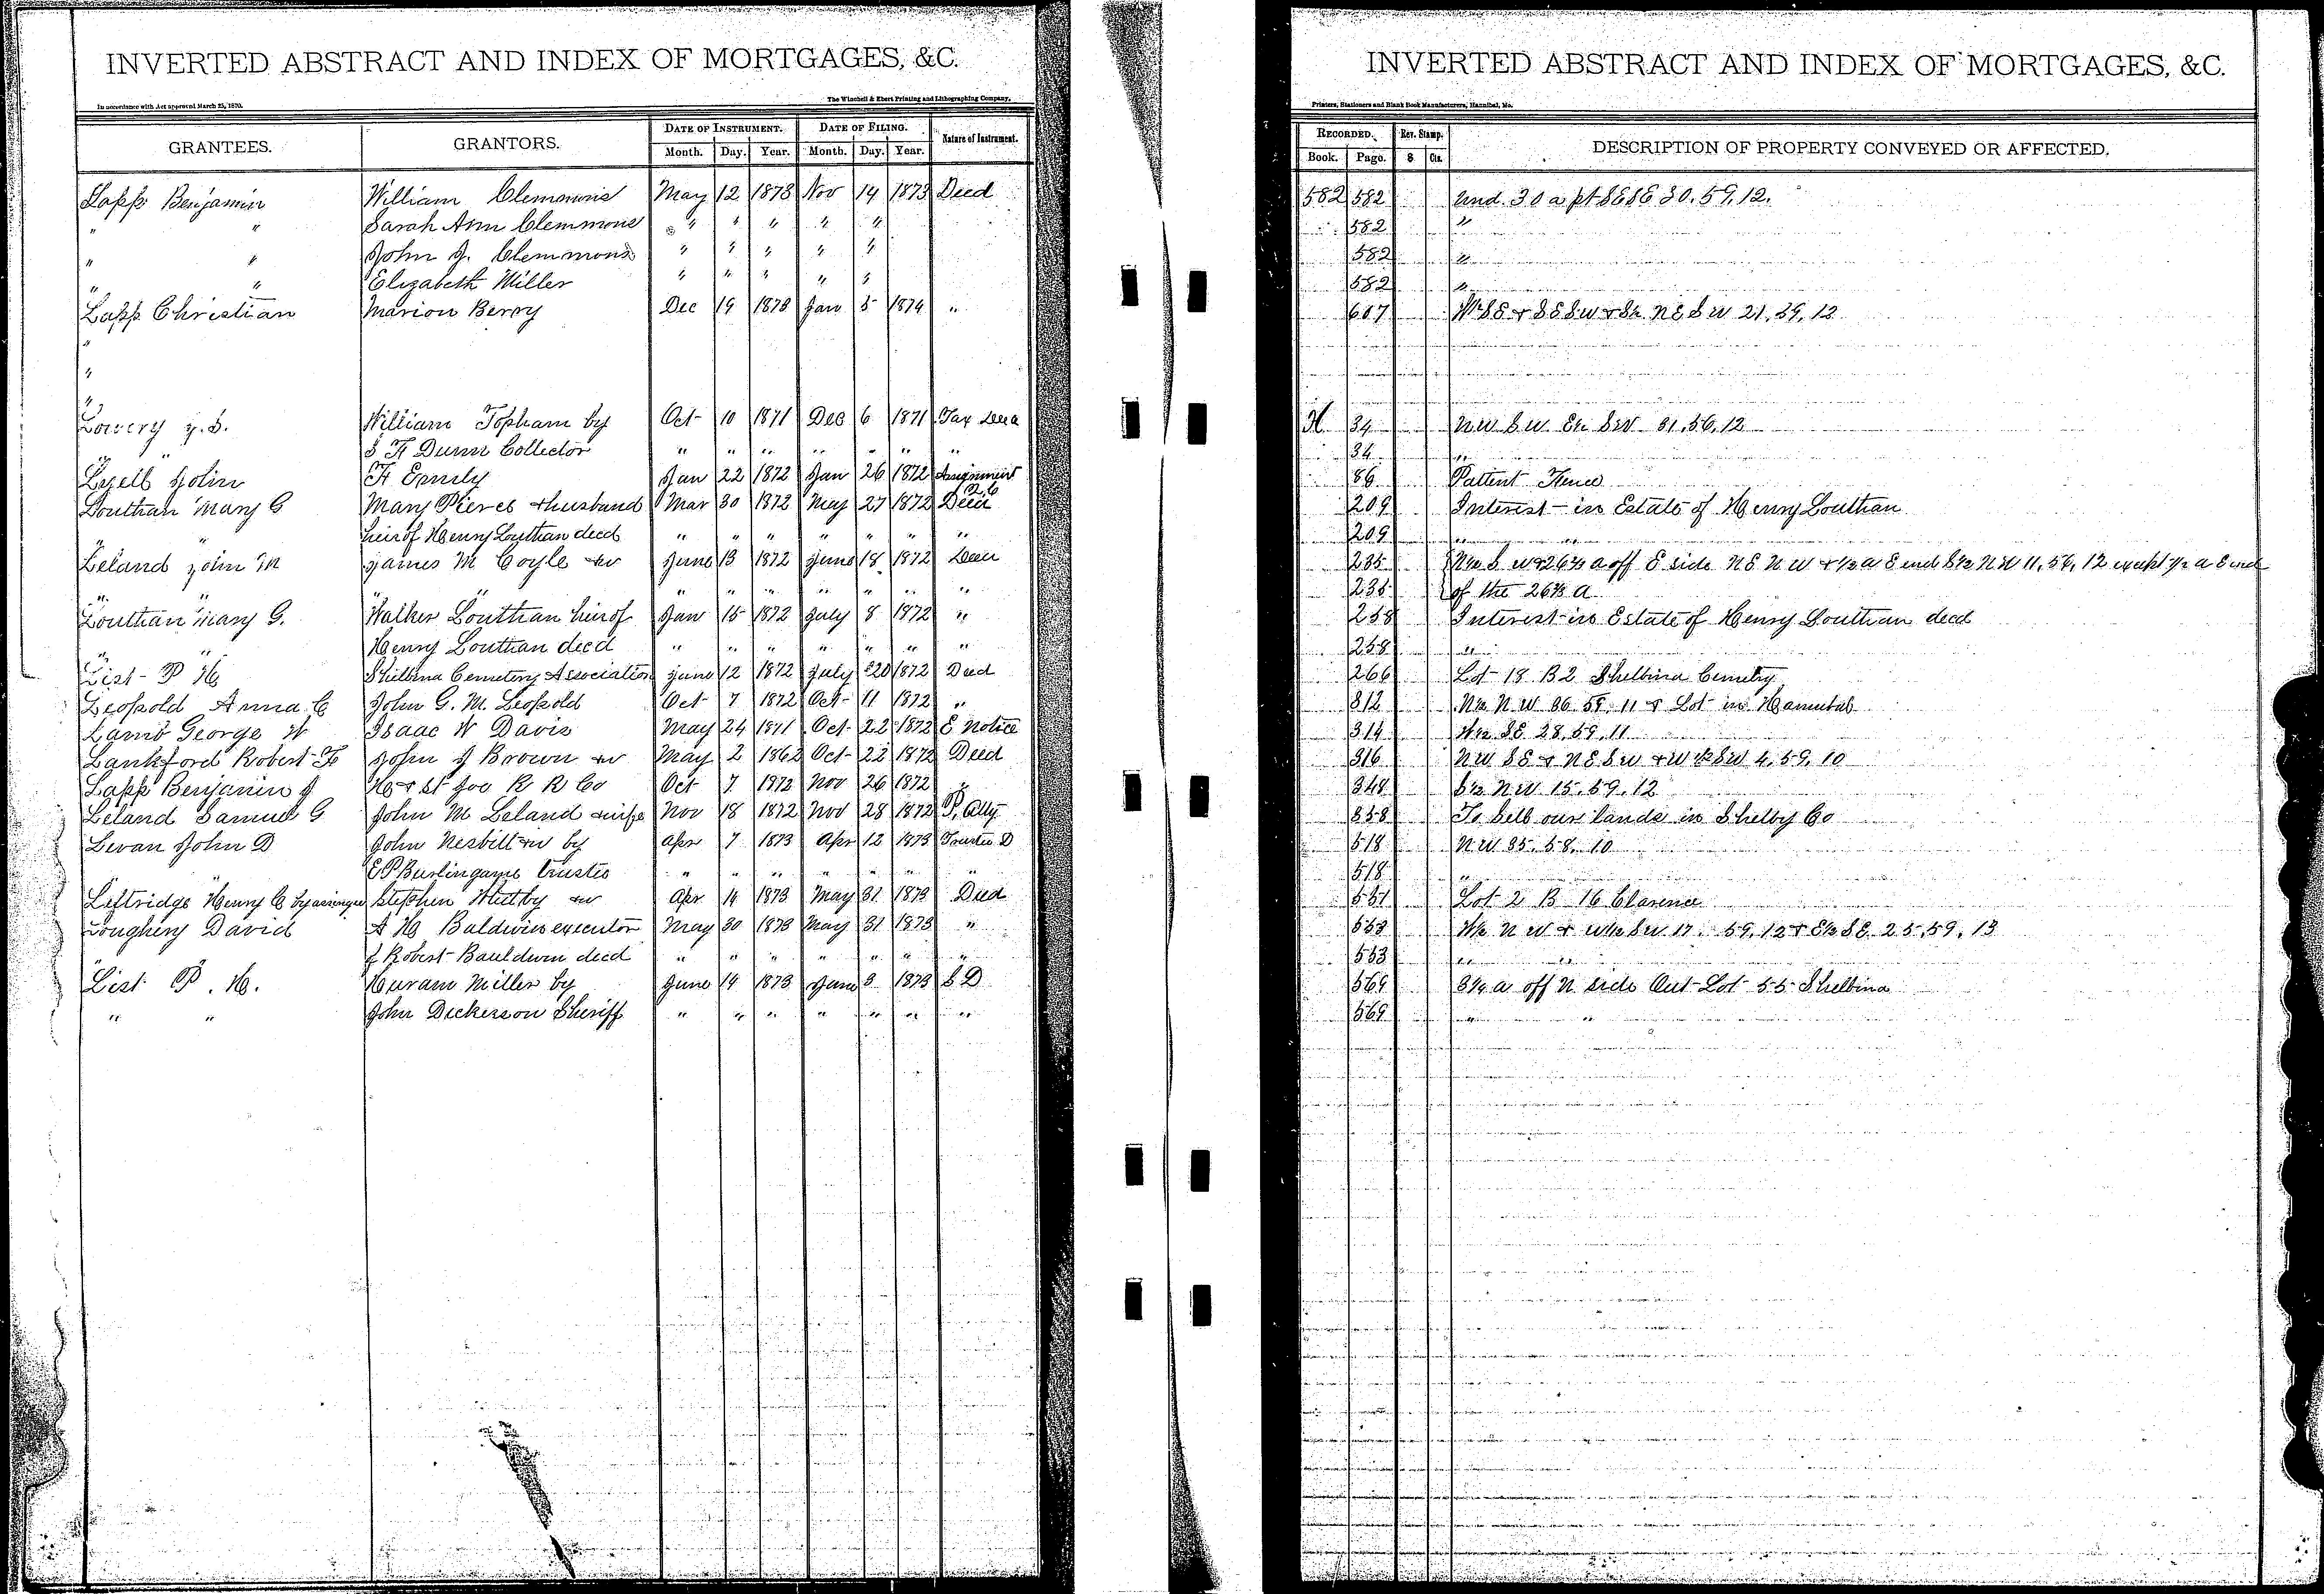 INVERTED ABSTRACT AND INDEX OF MORTGAGES, &C.
In accordance with Act approved March 25, 1870.
The Winchell & Ebert Printing and Lithographing Company,
GRANTEES. GRANTORS. DATE OF INSTRUMENT. DATE OF FILING. Nature of Instrument.
Month. Day. Year. Month. Day. Year.
Lapp Benjamin William Clemmons May 12 1873 Nov 14 1873 Deed
" " Sarah Ann Clemmons " " " " "
" " John J. Clemmons " " " " "
" " Elizabeth Miller " " " " "
Lapp Christian Marion Berry Dec 19 1873 Jan 5 1874 "
"
"
"
Lowery y.S. William Topham by Oct 10 1871 Dec 6 1871 Tax Deed
" " S F Dunn Collector " " " " " "
Lyell John F Emily Jan 22 1872 Jan 26 1872 Assignment
Louthan Mary C Mary Pierce & husband Mar 30 1872 May 27 1872 Q C Deed
" heir of Henry Louthan decd " " " " " "
Leland John M James M Coyle & w June 13 1872 June 18 1872 Deed
" " " " " " " "
Louthan Mary G. Walker Louthan heir of Jan 15 1872 July 8 1872 "
" " Henry Louthan decd " " " " " "
List P H Shelbina Cemetery Association June 12 1872 July 20 1872 Deed
Leopold Anna C John G. M. Leopold Oct 7 1872 Oct 11 1872 "
Lamb George W Isaac N Davis May 24 1871 Oct 22 1872 E Notice
Lankford Robert F John J Brown & w May 2 1862 Oct 22 1872 Deed
Lapp Benjamin J H & St Joe R R Co Oct 7 1872 Nov 26 1872 "
Leland Samuel G John M Leland & wife Nov 18 1872 Nov 28 1872 P. Atty
Levan John D John Nesbitt & w by Apr 7 1873 Apr 12 1873 Trustee D
E P Burlingame trustee " " " " " "
Leftridge Henry C by assignee Stephen Whitby & w Apr 14 1873 May 31 1873 Deed
Loughery David A H Baldwin executor May 30 1873 May 31 1873 "
of Robert Bauldwin decd " " " " " "
List P. H. Huram Miller by June 14 1873 June 3 1873 S D
" " John Dickerson Sheriff " " " " " " "
INVERTED ABSTRACT AND INDEX OF MORTGAGES, &C.
Printers, Stationers and Blank Book Manufacturers, Hannibal, Mo.
RECORDED. Rev. Stamp. DESCRIPTION OF PROPERTY CONVEYED OR AFFECTED.
Book. Page. $ Cts.
582 582 und. 30 a pt SE SE 30. 59. 12.
582 "
582 "
582 "
607 W½ SE & SE SW & S½ NE SW 21, 59, 12
H 34 NW SW E½ SW 31, 56, 12
34 "
86 Pattent Fence
209 Interest in Estate of Henry Louthan
209 " "
235 N½ S W & 26⅔ a off E side NE NW & ½ a E end S½ NW 11, 57, 12 except ½ a E end
235 of the 26⅔ a
258 Interest in Estate of Henry Louthan decd
258 "
266 Lot 18 B 2 Shelbina Cemetry
312 N½ N W 36 58 11 & Lot in Hannibal
314 W½ SE 28, 59, 11
316 NW SE & NE SW & W½ SW 4, 59, 10
348 S½ NW 15, 59, 12
358 To Sell our lands in Shelby Co
518 NW 35, 58, 10
518 "
551 Lot 2 B 16 Clarence
553 W½ N W & W½ SW 17, 59, 12 & E½ SE 25, 59, 13
553 " "
569 3¼ a off N side Out Lot 55 Shelbina
569 " "